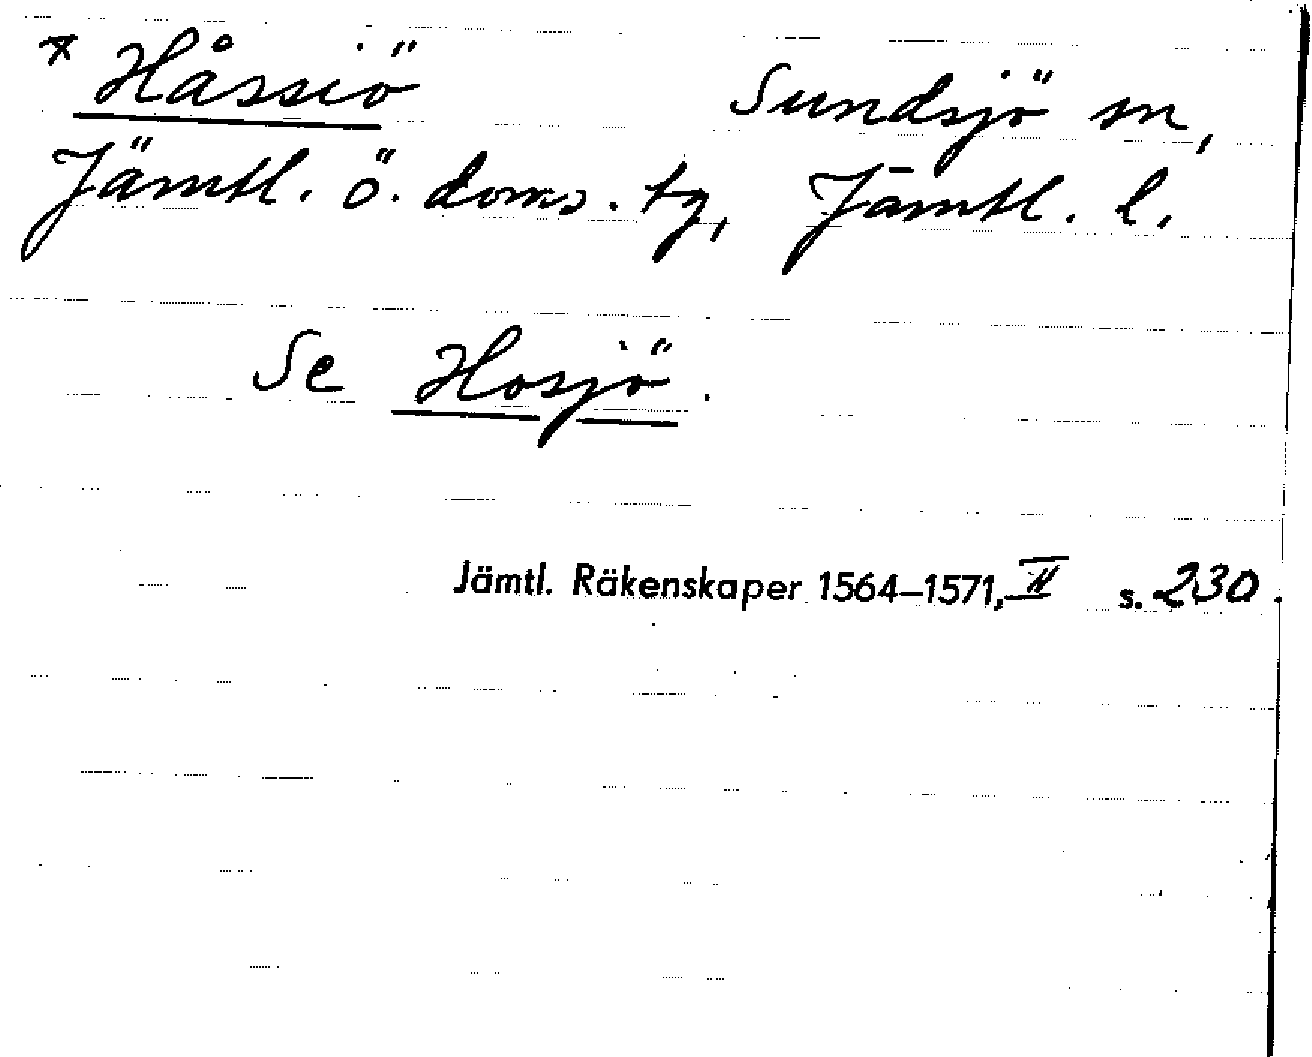 * Håssiö Sundsjö sn,
Jämtl. ö. doms. tg, Jämtl. l.
Se Hosjö.
Jämtl. Räkenskaper 1564–1571, II s. 230.